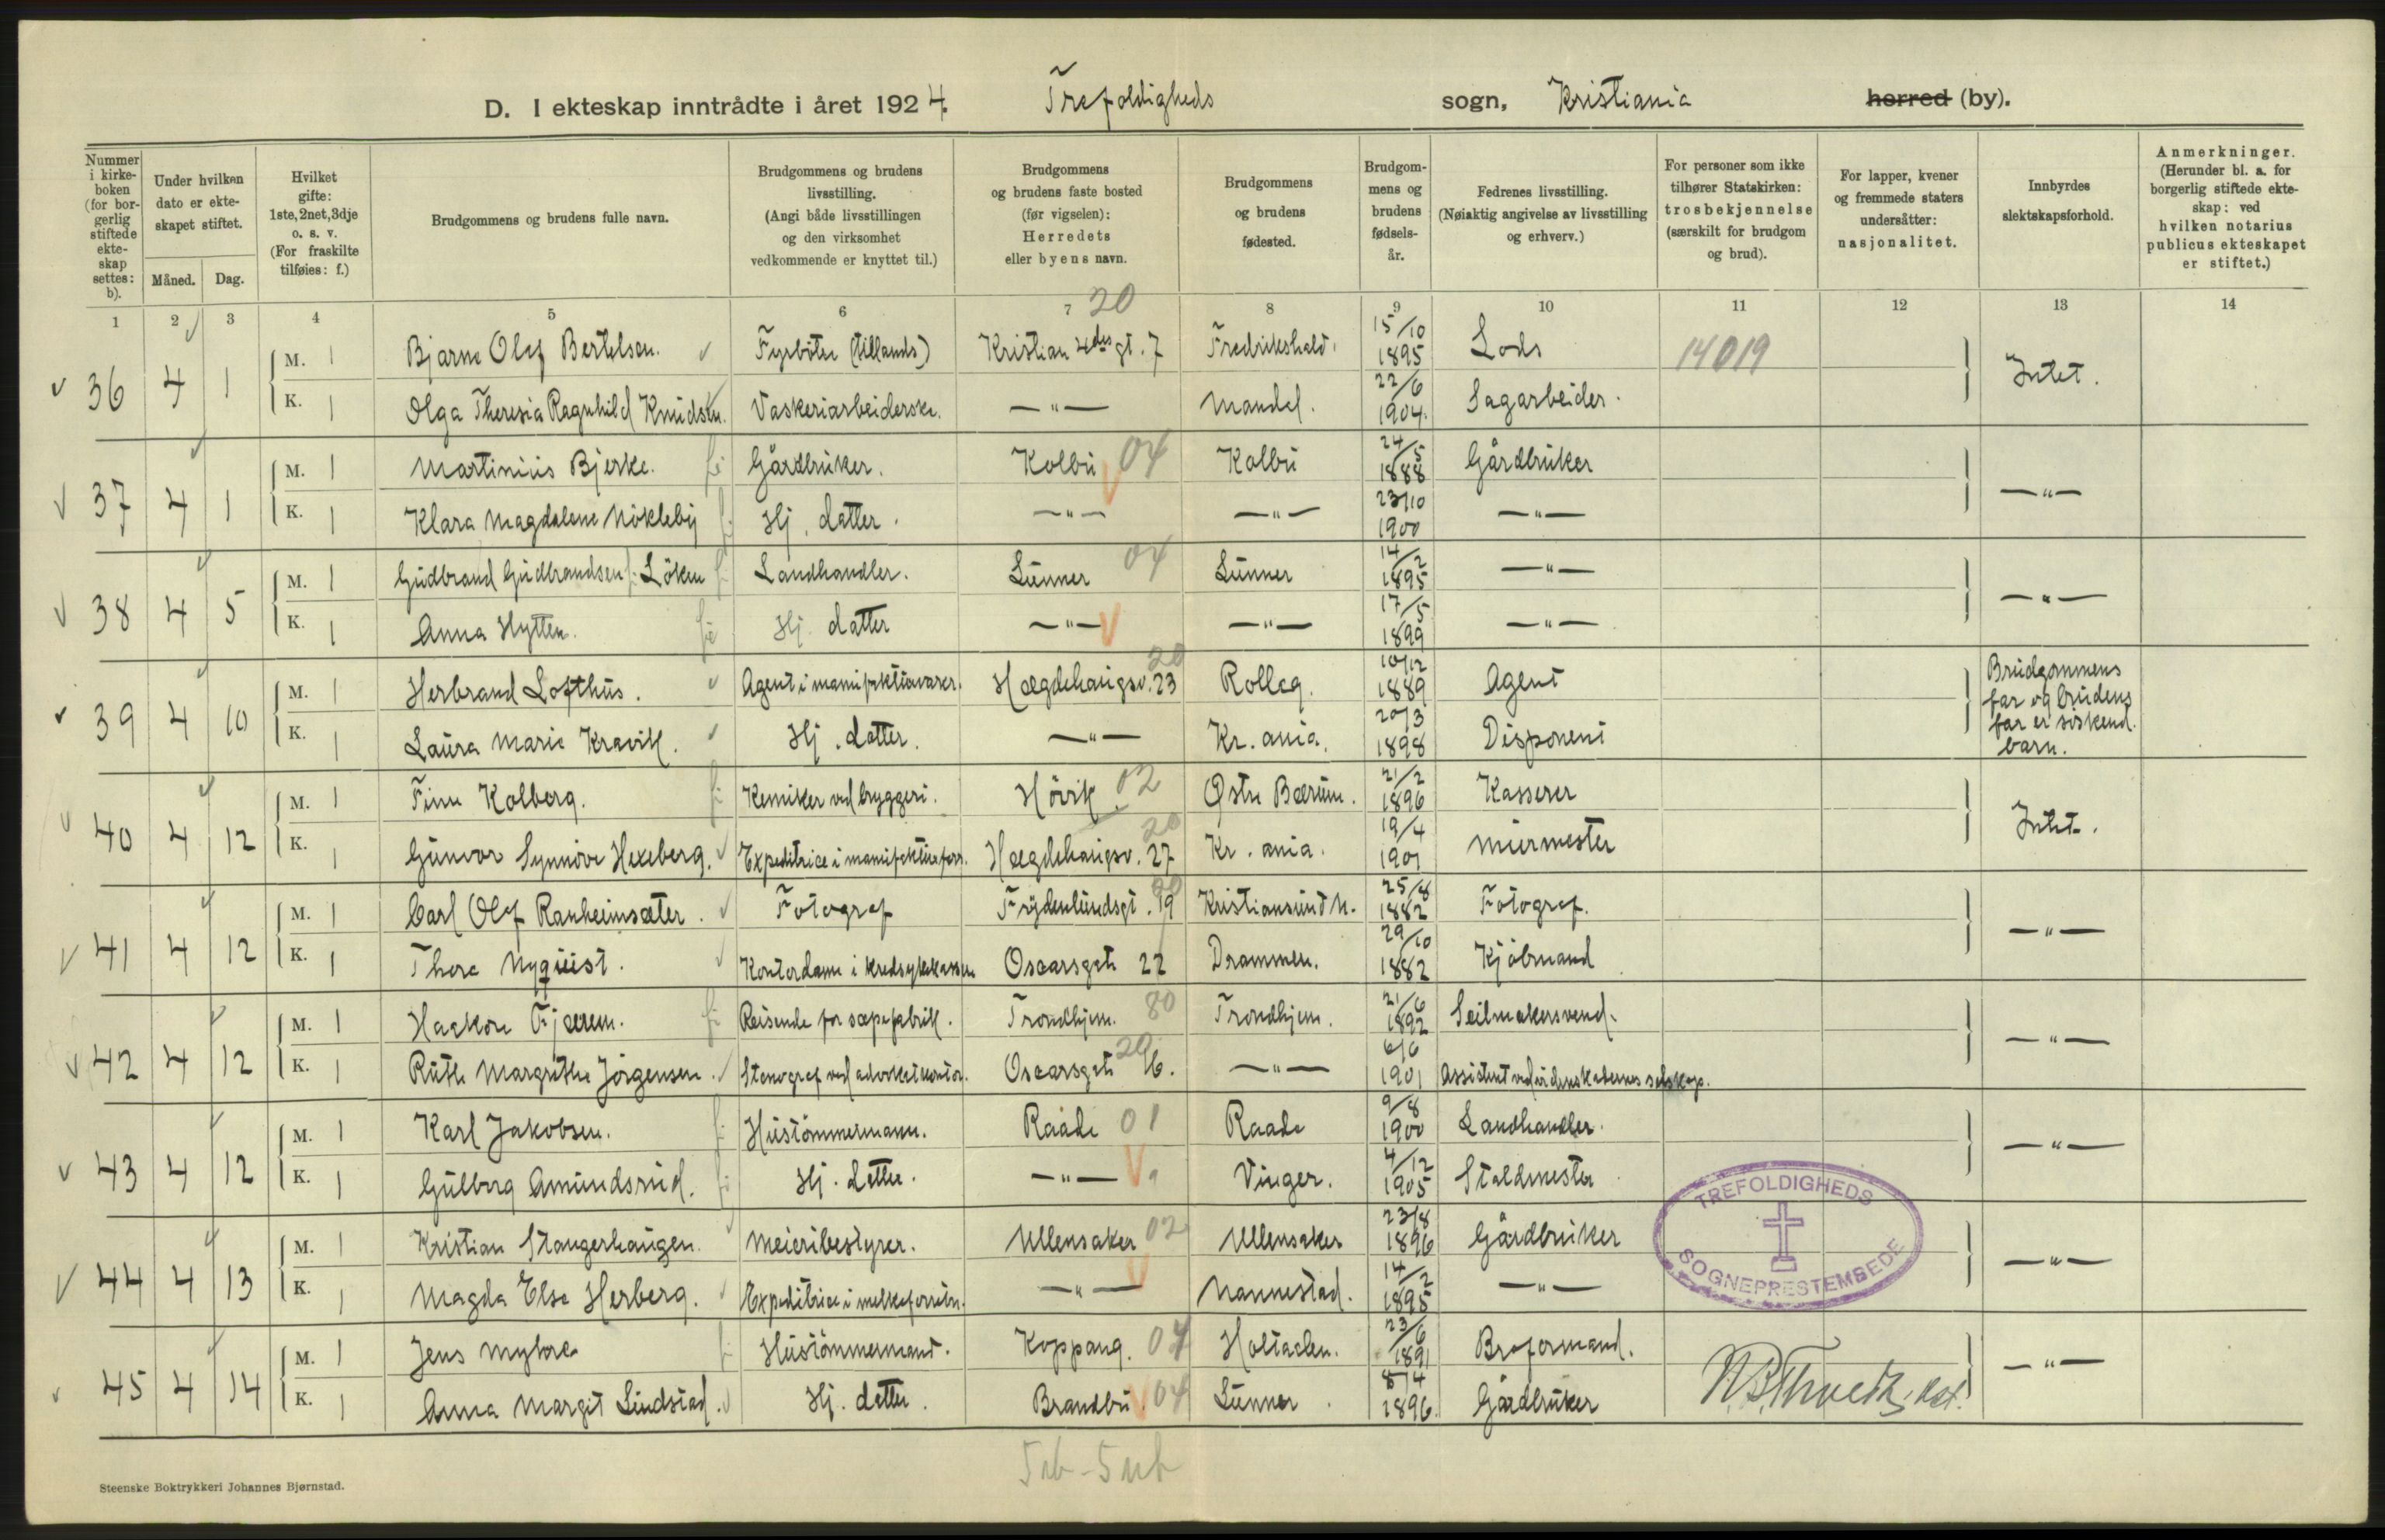 D. I ekteskap inntrådte i året 1924. Trefoldigheds sogn, Kristiania herred (by).
Nummer i kirkeboken (for borgerlig stiftede ekteskap settes: b).
Under hvilken dato er ekteskapet stiftet.
Måned. Dag.
Hvilket gifte: 1ste, 2net, 3dje o. s. v. (For fraskilte tilføies: f.)
Brudgommens og brudens fulle navn.
Brudgommens og brudens livsstilling. (Angi både livsstillingen og den virksomhet vedkommende er knyttet til.)
Brudgommens og brudens faste bosted (før vigselen): Herredets eller byens navn.
Brudgommens og brudens fødested.
Brudgommens og brudens fødselsår.
Fedrenes livsstilling. (Nøiaktig angivelse av livsstilling og erhverv.)
For personer som ikke tilhører Statskirken: trosbekjennelse (særskilt for brudgom og brud).
For lapper, kvener og fremmede staters undersåtter: nasjonalitet.
Innbyrdes slektskapsforhold.
Anmerkninger. (Herunder bl. a. for borgerlig stiftede ekteskap: ved hvilken notarius publicus ekteskapet er stiftet.)
1 2 3 4 5 6 7 8 9 10 11 12 13 14
20
36 4 1 M. 1 Bjarne Olaf Bertelsen. Fyrbøter (utlands) Kristian 4des gt. 7 Fredrikshald. 15/10 1895 Lods 14019 Intet.
K. 1 Olga Theresia Ragnhild Knudsen. Vaskeriarbeiderske. —"— Mandal. 22/6 1904. Sagarbeider.
37 4 1 M. 1 Martinius Bjerke. Gårdbruker. Kolbu 04 Kolbu 24/5 1888 Gårdbruker —"—
K. 1 Klara Magdalene Nökleby Hj. datter. —"— —"— 23/10 1900 —"—
38 4 5 M. 1 Gudbrand Gudbrandsen Löken Landhandler. Lunner 04 Lunner 14/2 1895 —"— —"—
K. 1 Anna Hytten. Hj. datter —"— —"— 17/5 1899 —"—
39 4 10 M. 1 Herbrand Lofthus. Agent i manufakturvarer. Hægdehaugsv. 23 20 Rollag. 10/12 1889 Agent Brudgommens far og brudens far er søskendbarn.
K. 1 Laura Marie Kravik. Hj. datter. —"— Kr.ania. 20/3 1898 Disponent
40 4 12 M. 1 Finn Kolberg. Kemiker ved bryggeri. Hövik 02 Østre Bærum. 21/2 1896 Kasserer Intet.
K. 1 Gunvor Synnöve Hexeberg. Expeditrice i manufakturforr. Hægdehaugsv. 27 20 Kr.ania. 19/4 1901 Murmester
41 4 12 M. 1 Carl Olaf Ranheimsæter. Fotograf Frydenlundsgt. 19 20 Kristiansund N. 25/8 1882 Fotograf. —"—
K. 1 Thora Nyquist. Kontordame i kredsykekassen Oscarsgate 22 Drammen. 29/10 1882 Kjöbmand
42 4 12 M. 1 Haakon Fjærem. Reisende for sæpefabrik. Trondhjem. 80 Trondhjem. 21/6 1892 Seilmakersvend. —"—
K. 1 Ruth Margrethe Jörgensen. Stenograf ved advokatkontor. Oscarsgate 20 —"— 6/6 1901 Assistent ved videnskabernes selskap.
43 4 12 M. 1 Karl Jakobsen. Hustömmermann. Raade 01 Raade 9/8 1900 Landhandler. —"—
K. 1 Gulborg Amundsrud. Hj. datter. —"— Vinger. 4/12 1905 Staldmester
44 4 13 M. 1 Kristian Stangerhaugen. Meieribestyrer. Ullensaker 02 Ullensaker 23/8 1896 Gårdbruker —"—
K. 1 Magda Else Herberg. Expeditrice i melkeforretn. —"— Nannestad. 14/2 1895 —"—
TREFOLDIGHEDS SOGNEPRESTEMBEDE
45 4 14 M. 1 Jens Myhre Hustömmermand. Koppang. 04 Holtaalen. 23/6 1891 Broformand. —"—
K. 1 Anna Margit Lindstad. Hj. datter. Brandbu. 04 Lunner 8/4 1896. Gårdbruker
Steenske Boktrykkeri Johannes Bjørnstad.